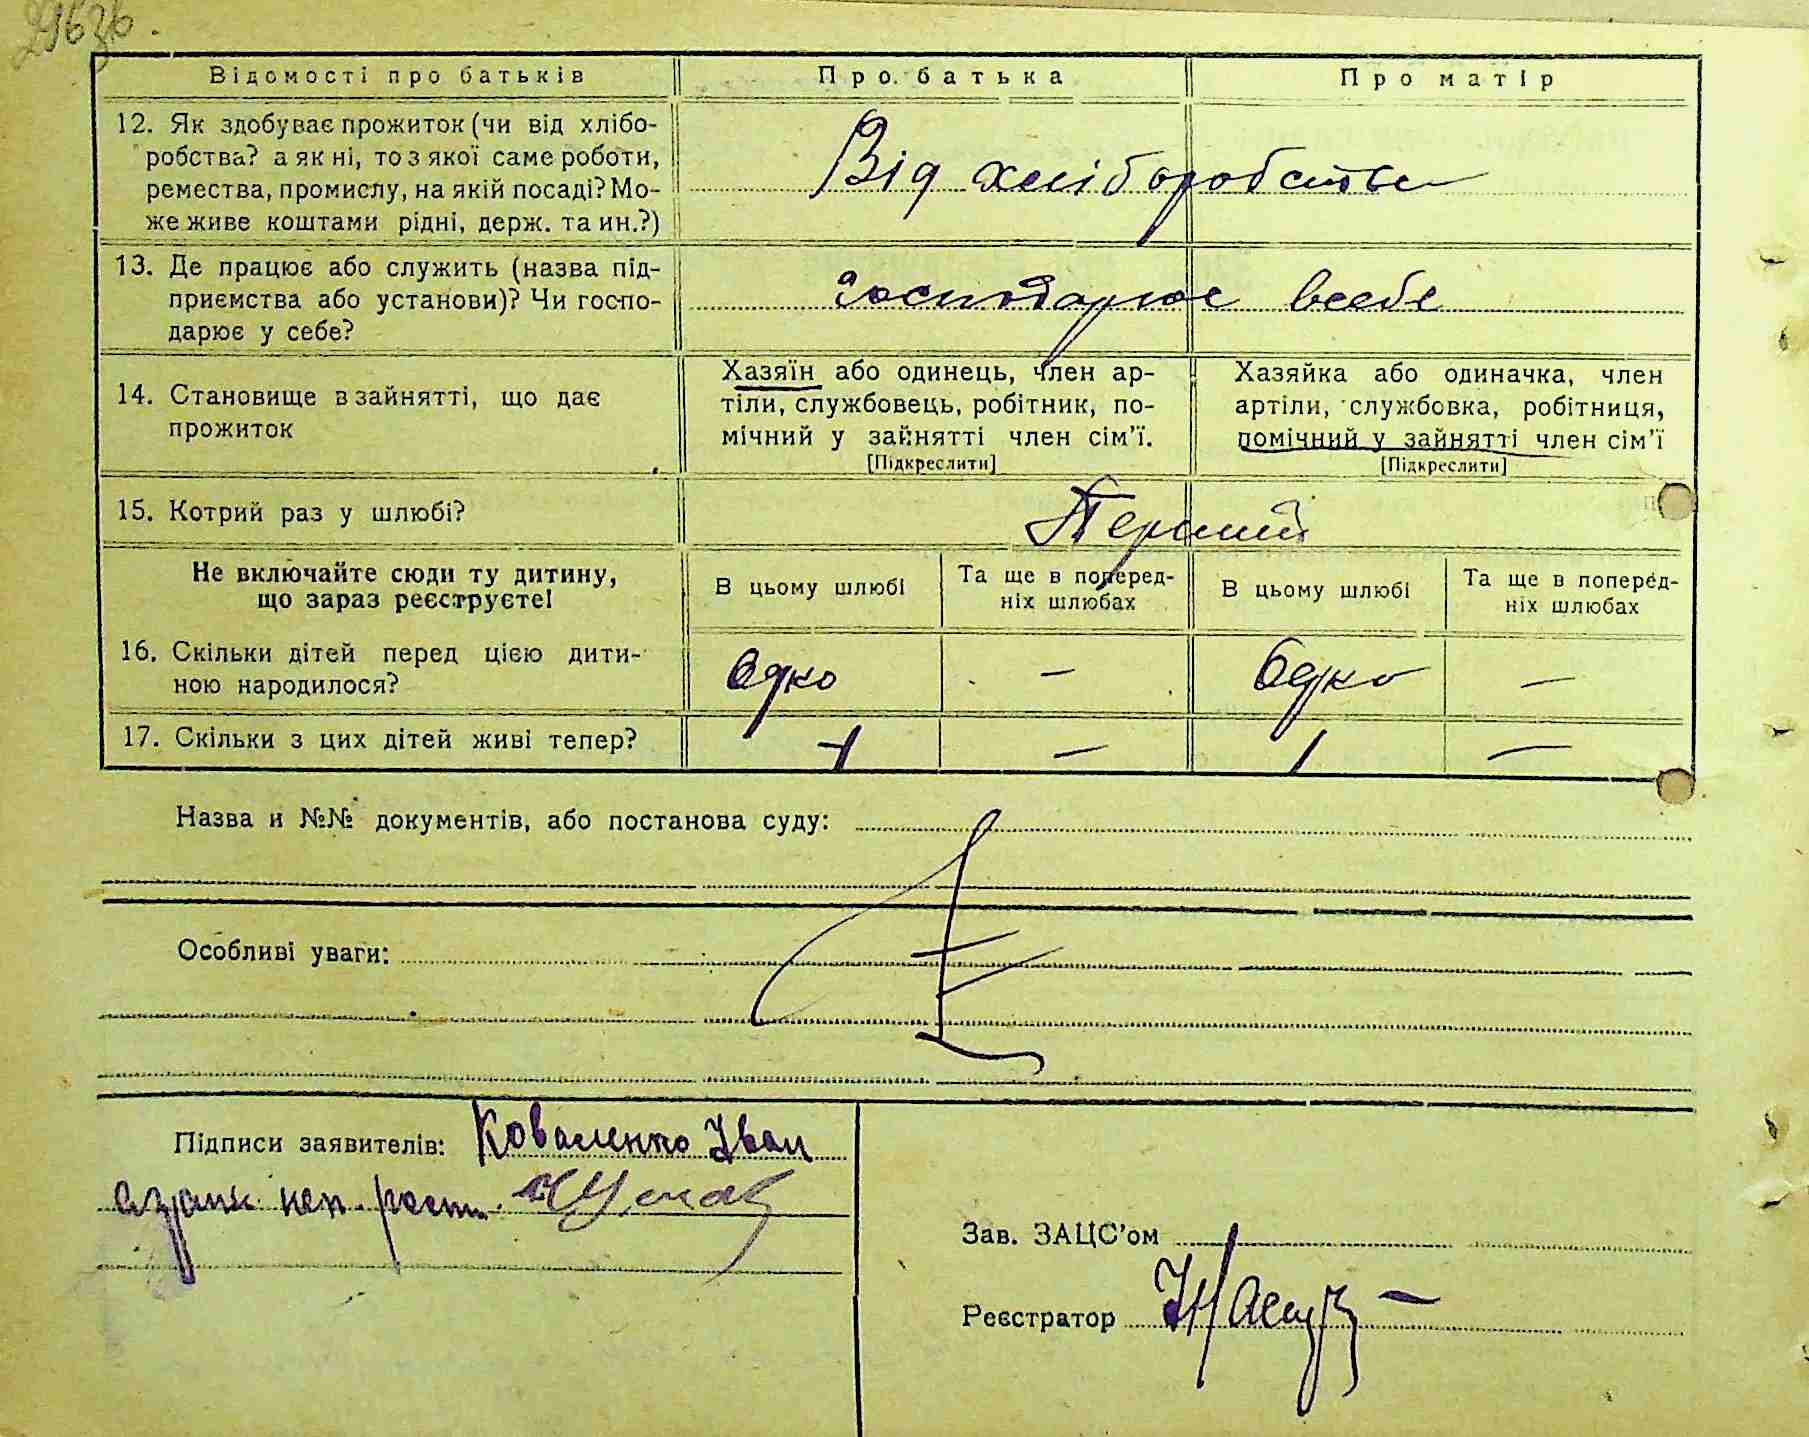 Відомості про батьків Про батька Про матір
12. Як здобуває прожиток (чи від хлібо-
робства? а як ні, то з якої саме роботи,
ремества, промислу, на якій посаді? Мо-
же живе коштами рідні, держ. та ин.?)
Від хліборобства
13. Де працює або служить (назва під-
приємства або установи)? Чи госпо-
дарює у себе?
господарює всебе
14. Становище в зайнятті, що дає
прожиток
Хазяїн або одинець, член ар-
тіли, службовець, робітник, по-
мічний у зайнятті член сім’ї.
[Підкреслити]
Хазяйка або одиначка, член
артіли, службовка, робітниця,
помічний у зайнятті член сім’ї
[Підкреслити]
15. Котрий раз у шлюбі? Перший
Не включайте сюди ту дитину,
що зараз реєструєте!
В цьому шлюбі
Та ще в поперед-
ніх шлюбах
В цьому шлюбі
Та ще в поперед-
ніх шлюбах
16. Скільки дітей перед цією дити-
ною народилося?
Одно — Одно —
17. Скільки з цих дітей живі тепер? 1 — 1 —
Назва и №№ документів, або постанова суду:
Особливі уваги:
Підписи заявителів: Коваленко Іван
Зав. ЗАЦС’ом
Реєстратор